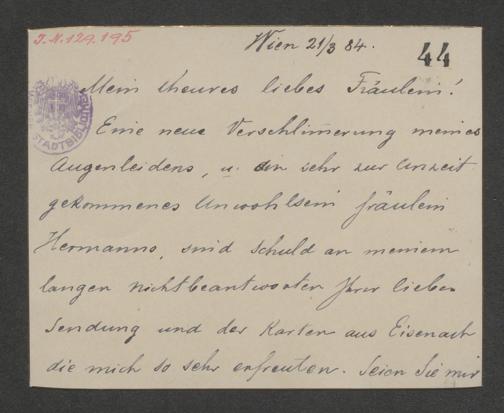 J.N. 129.195
Wien 21/3 84.
44
Mein theures liebes Fräulein!
Eine neue Verschlimerung meines
Augenleidens, u. ein sehr zur Unzeit
gekommenes Unwohlsein Fräulein
Hermanns, sind schuld an meinem
langen nichtbeantworten Ihrer lieben
Sendung und der Karten aus Eisenach
die mich so sehr erfreuten. Seien Sie mir
STADTBIBLIOTHEK